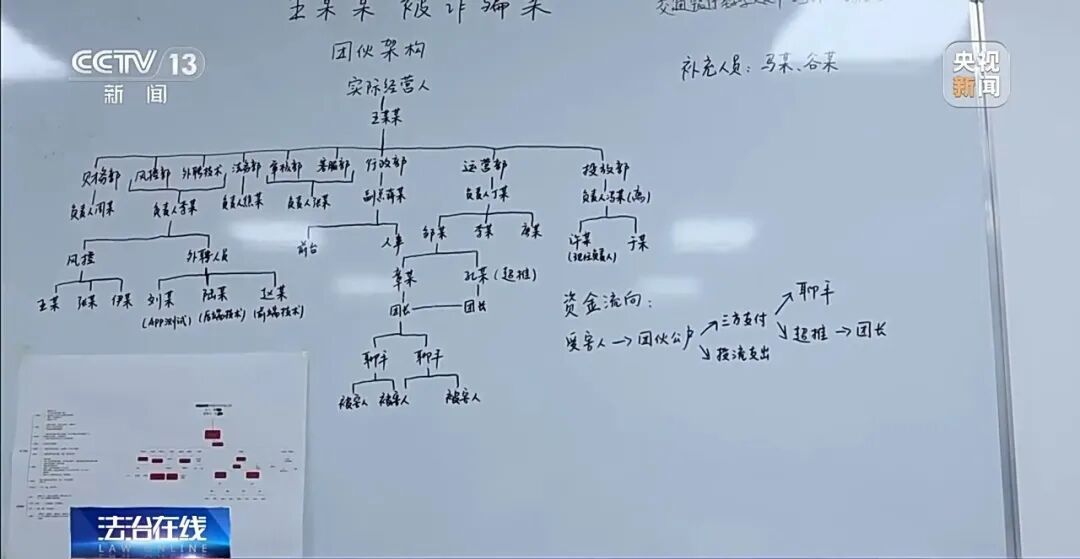 王某某被诈骗案
团伙架构
补充人员：马某、谷某
CCTV 13
新闻
央视
新闻
实际经营人
王某某
财务部 风控部 外聘技术 法务部 审核部 客服部 行政部 运营部 投放部
负责人周某 负责人李某 负责人焦某 负责人张某 副总薛某 负责人丁某 负责人冯某(离)
前台 人事 邹某 李某 唐某 许某 于某
(现任负责人)
风控 外聘人员
章某 孔某(超推)
王某 陆某 伊某 刘某 陆某 赵某
(APP测试) (后端技术) (前端技术)
团长 团长
聊手 聊手
被害人 被害人 被害人
资金流向：
受害人 → 团伙公户 → 三方支付 → 聊手
→ 投流支出 → 超推 → 团长
法治在线
LAW ONLINE